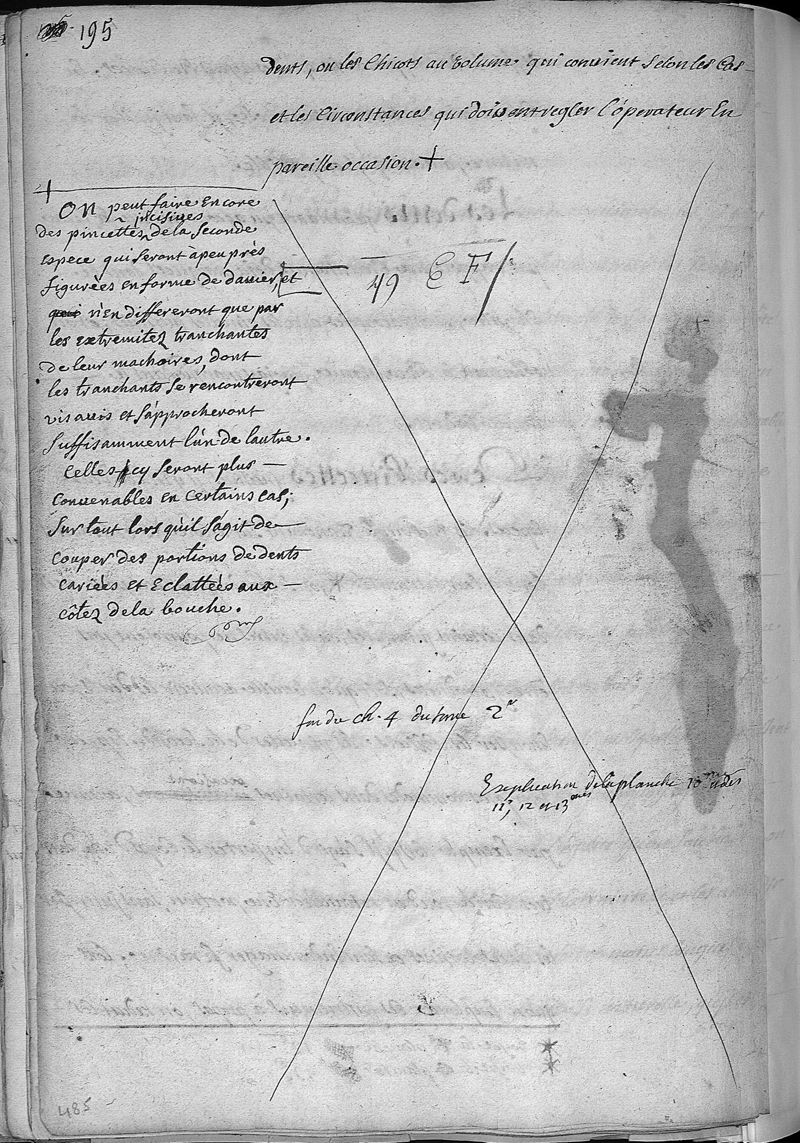 195
dents, ou les Chicots au volume qui convient selon les Cas
et les Circonstances qui doivent regler l'óperateur En
pareille occasion. +
+
On peut faire Encore
incisives
des pincettes de la seconde
Espece qui seront àpeu près
figurées en forme de davier, et
n'en differeront que par
les extremitez tranchantes
de leur machoires, dont
les tranchants se rencontreront
vis avis et s'approcheront
suffisamment l'un de lautre.
Celles cy seront plus —
Convenables en Certains cas;
sur tout lors qu'il s'agit de
couper des portions de dents
cariées et Eclattées aux —
côtez de la bouche.
49 E F/
fin du ch. 4 du tome 2
Explication de la planche 10 et des
11, 12 et 13
485